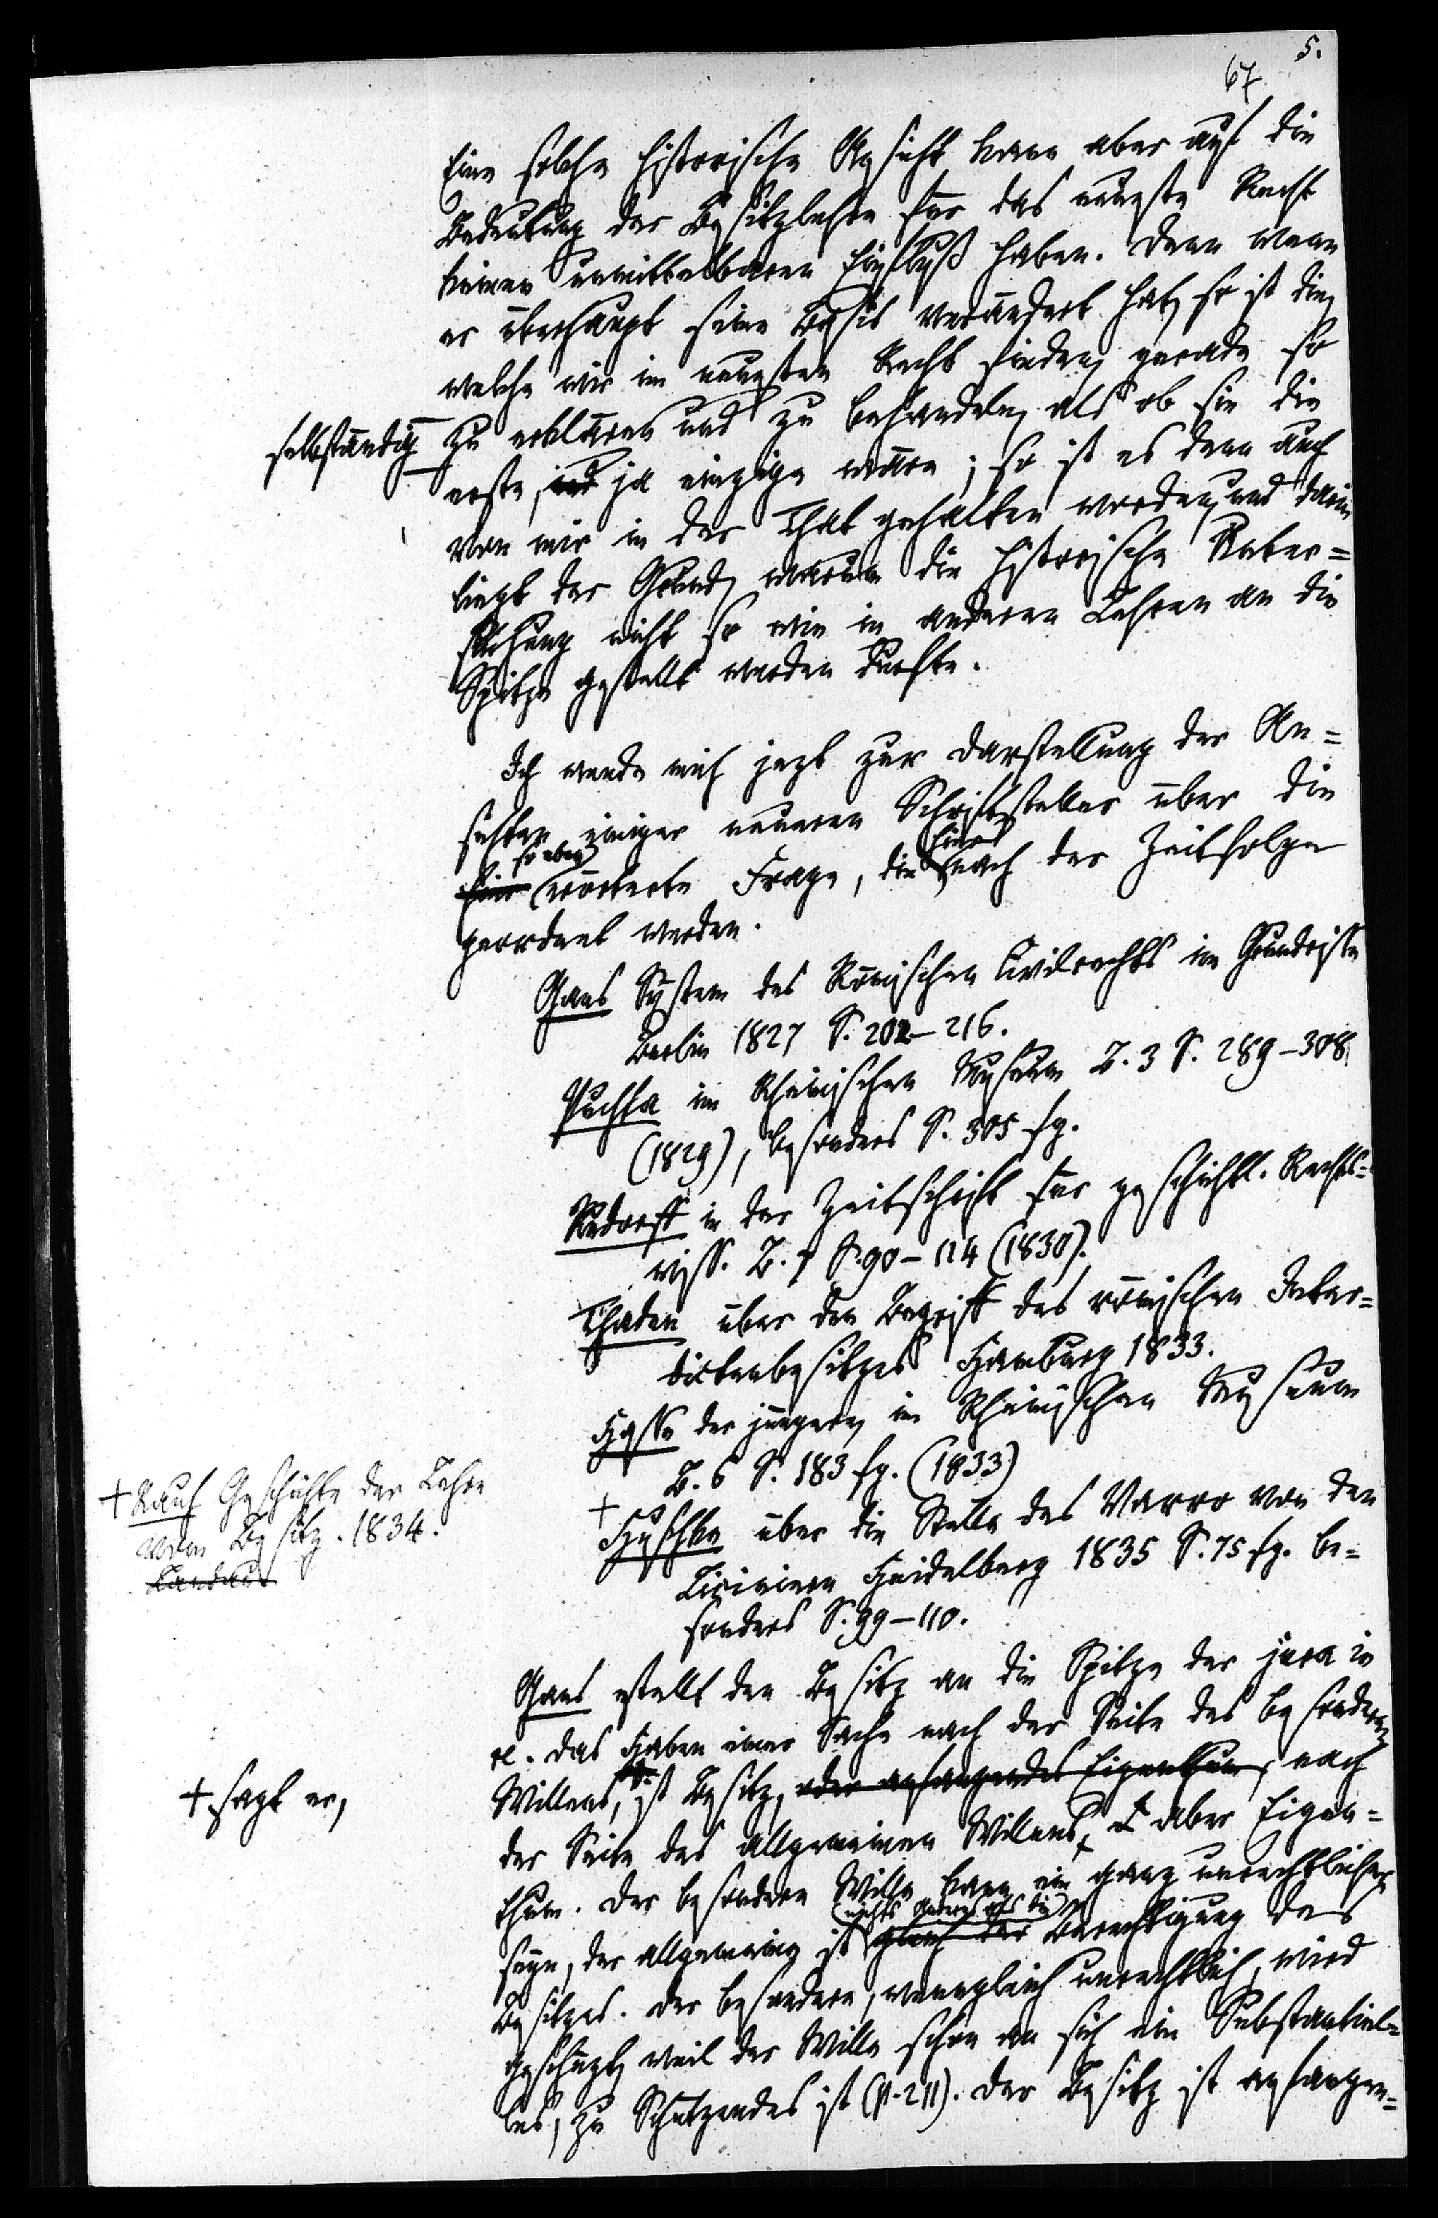 5.
67
Eine solche historische Ansicht kann aber auf die
Bedeutung der Besitzlehre für das neueste Recht
keinen unmittelbaren Einfluß haben. Denn wenn
er überhaupt seine Basis verändert hat, so ist die,
welche wir im neuesten Recht finden, gerade so
selbständig zu erklären und zu behandeln, als ob sie die
erste, und ja einzige wäre; so ist es denn auch
von mir in der That gehalten worden, und darin
liegt der Grund, warum die historische Unter=
suchung nicht so wie in anderen Lehren an die
Spitze gestellt werden durfte.
Ich wende mich jezt zur Darstellung der An=
sichten einiger neueren Schriftsteller über die
so eben hier
hier erörterte Frage, die nach der Zeitfolge
geordnet werden.
Gans System des Römischen Civilrechts im Grundrisse
Berlin 1827 S. 202–216.
Puchta im Rheinischen Museum B. 3 S. 289–308
(1829), besonders S. 305 fg.
Rudorff in der Zeitschrift für geschichtl. Rechts=
wiss. B. 7 S. 90–114 (1830).
Thaden über den Begriff des römischen Inter=
dictenbesitzes Hamburg 1833.
Hasse der jüngere, im Rheinischen Museum
B. 6 S. 183 fg. (1833)
+ Rauh Geschichte der Lehre
vom Besitz. 1834.
Landau
+ Huschke über die Stelle des Varro von den
Liciniern Heidelberg 1835 S. 75 fg. be=
sonders S. 99–110.
Gans stellt den Besitz an die Spitze der jura in
re. Das Haben einer Sache nach der Seite des besonderen
+ sagt er,
Willens, ist Besitz, oder anfangendes Eigenthum, nach
der Seite des allgemeinen Willens, aber Eigen=
thum. Der besondere Wille kann ein ganz unrechtlicher
nichts Anderes als die
seyn, der allgemeine ist gleich der Berechtigung des
Besitzes. Der besondere, wenngleich unrechtlich, wird
geschüzt, weil der Wille schon an sich ein Substantiel=
les, zu Schützendes ist (p. 211). Der Besitz ist anfangen=